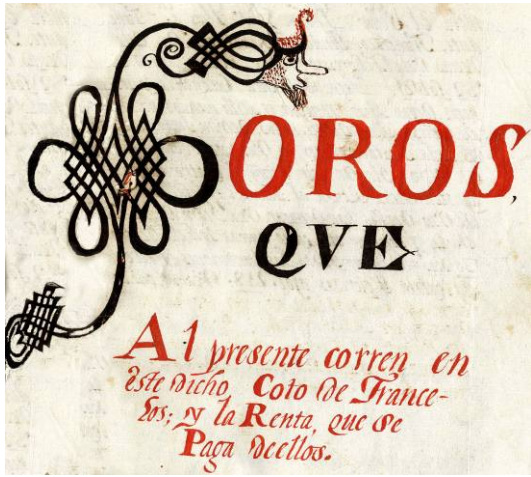 FOROS,
QVE
Al presente corren en
este dicho Coto de France-
los; y la Renta, que se
Paga de ellos.